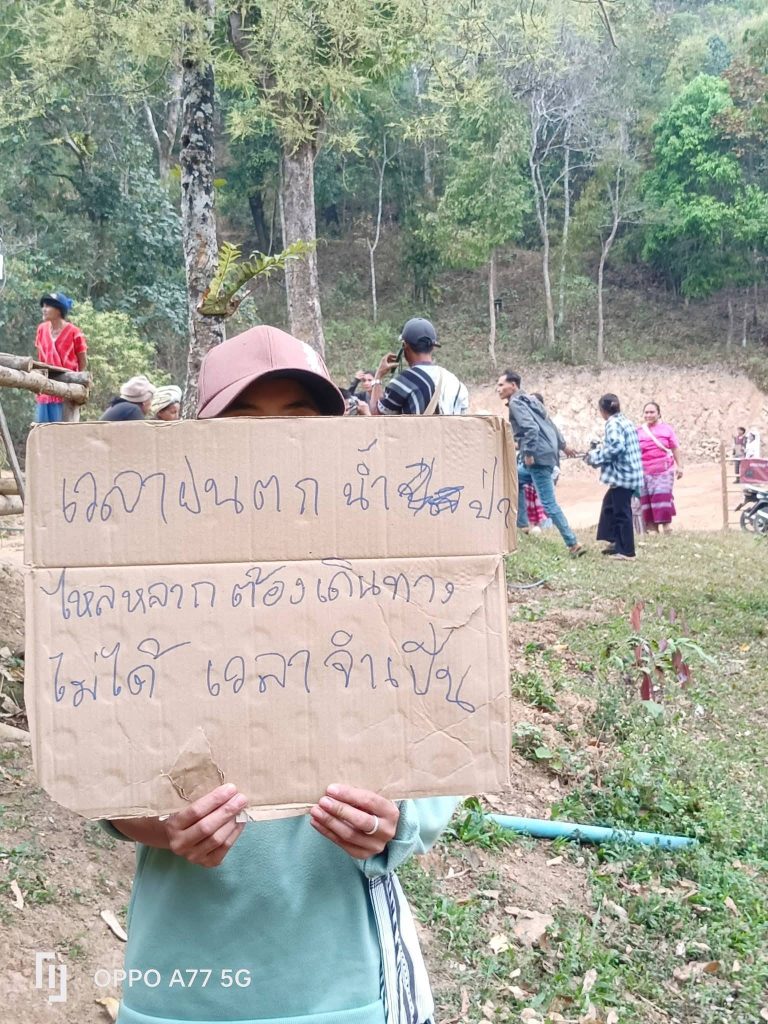 เวลาฝนตก น้ำ ป่า
ไหลหลาก ต้องเดินทาง
ไม่ได้ เวลาจำเป็น
OPPO A77 5G